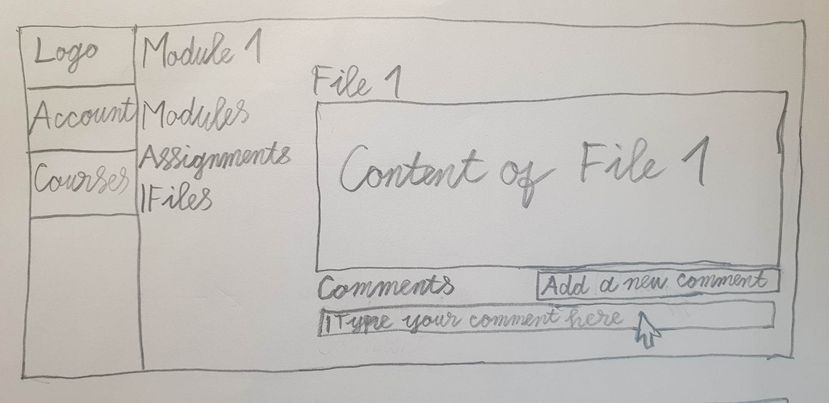 Logo
Account
Courses
Module 1
Modules
Assignments
Files
File 1
Content of File 1
Comments
Add a new comment
Type your comment here